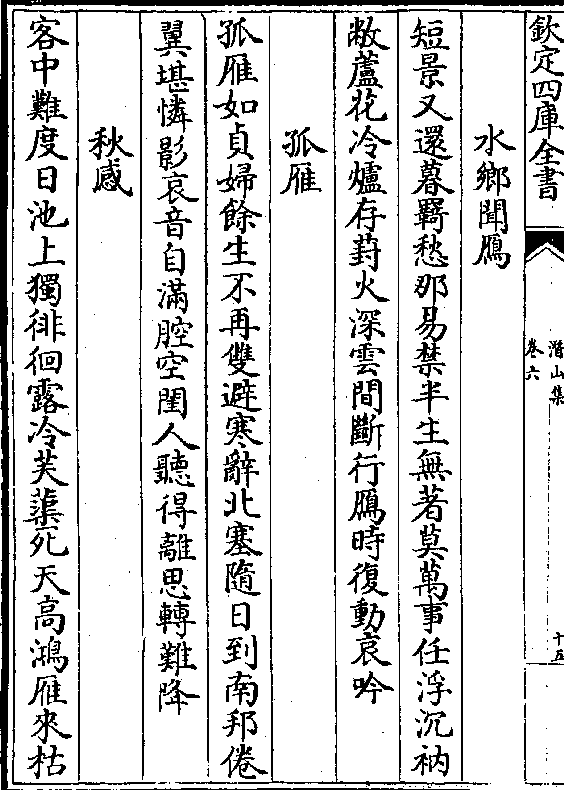 欽定四庫全書
潛山集
卷六
十五
水鄉聞鴈
短景又還暮羇愁那易禁半生無著莫萬事任浮沉衲
敝蘆花冷爐存葑火深雲間斷行鴈時復動哀吟
孤雁
孤雁如貞婦餘生不再雙避寒辭北塞隨日到南邦倦
翼堪憐影哀音自滿腔空閨人聽得離思轉難降
秋感
客中難度日池上獨徘徊露冷芙蕖死天高鴻雁來枯